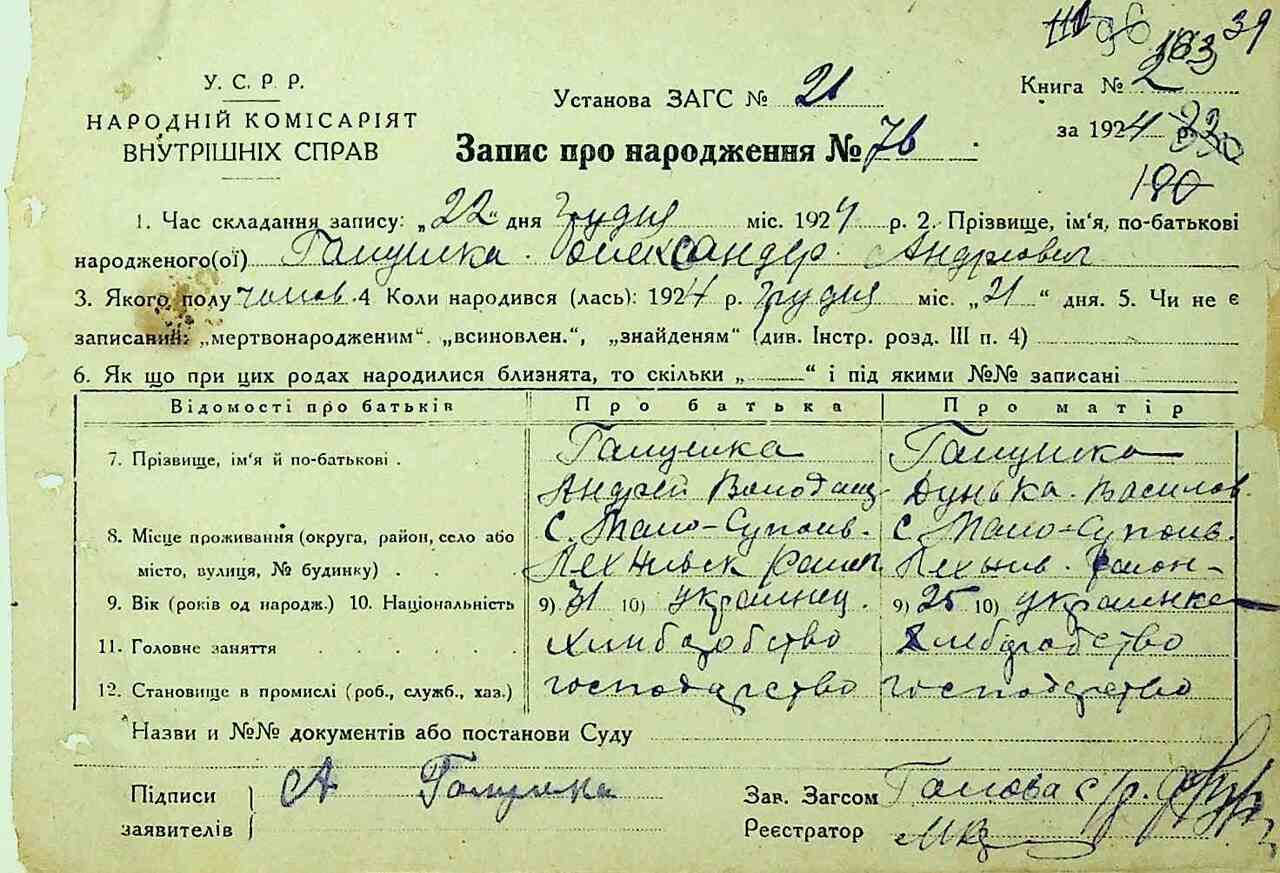 39
183
У. С. Р. Р.
НАРОДНІЙ КОМІСАРІЯТ
ВНУТРІШНІХ СПРАВ
Установа ЗАГС № 21
Книга № 2
за 1924 р.
190
Запис про народження № 76
1. Час складання запису: „22" дня Грудня міс. 1924 р. 2. Прізвище, ім'я, по-батькові
народженого(ої) Галушка Олександер Андрієвич
3. Якого полу чолов. 4 Коли народився (лась): 1924 р. Грудня міс. „21" дня. 5. Чи не є
записаний: „мертвонародженим". „всиновлен.", „знайденям" (див. Інстр. розд. III п. 4)
6. Як що при цих родах народилися близнята, то скільки „ " і під якими №№ записані
Відомості про батьків Про батька Про матір
7. Прізвище, ім'я й по-батькові . Галушка Галушка
Андрей Володим. Дунька Василов.
8. Місце проживання (округа, район, село або С. Мало-Супоїв. С. Мало-Супоїв.
місто, вулиця, № будинку) . .
9. Вік (років од народж.) 10. Національність 9) 31 10) украинец. 9) 25 10) украинка
11. Головне заняття . . . . . . хлиборобство хлиборобство
12. Становище в промислі (роб., служб., хаз.) господарство господарство
Назви и №№ документів або постанови Суду
Підписи А Галушка Зав. Загсом
заявителів Реєстратор